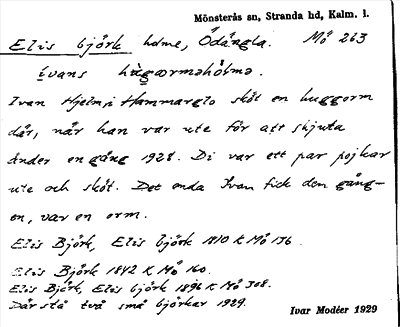 Mönsterås sn, Stranda hd, Kalm. l.
Elis björk holme, Ödängla. Mö 263
ivans hùgǝrmǝhòlmǝ.
Ivan Hjelm i Hammarglo sköt en huggorm
där, när han var ute för att skjuta
änder en gång 1928. Di var ett par pojkar
ute och sköt. Det enda Ivan fick den gång-
en, var en orm.
Elis Björk, Elis björk 1810 K Mö 136.
Elis Björk 1842 K Mö 160.
Elis Björk, Elis björk 1896 K Mö 308.
Där stå två små björkar 1929.
Ivar Modéer 1929